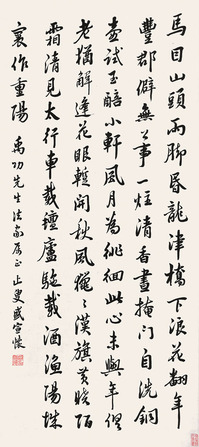 馬目山頭雨腳昏龍津橋下浪花翻年
豐郡僻無公事一炷清香晝掩門自洗銅
壺試玉醅小軒風月為徘徊此心未與年俱
老猶解逢花眼暫開秋風獵〻漢旗黃曉陌
霜清見太行車載氈廬駝載酒漁陽城
裏作重陽 禹功先生法家屬正 止叟盛宣懷